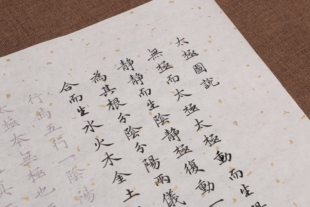 太極圖說
無極而太極太極動而生
靜靜而生陰靜極復動一
為其根分陰分陽兩儀
合而生水火木金土
行為五行一陰陽
極本無極也